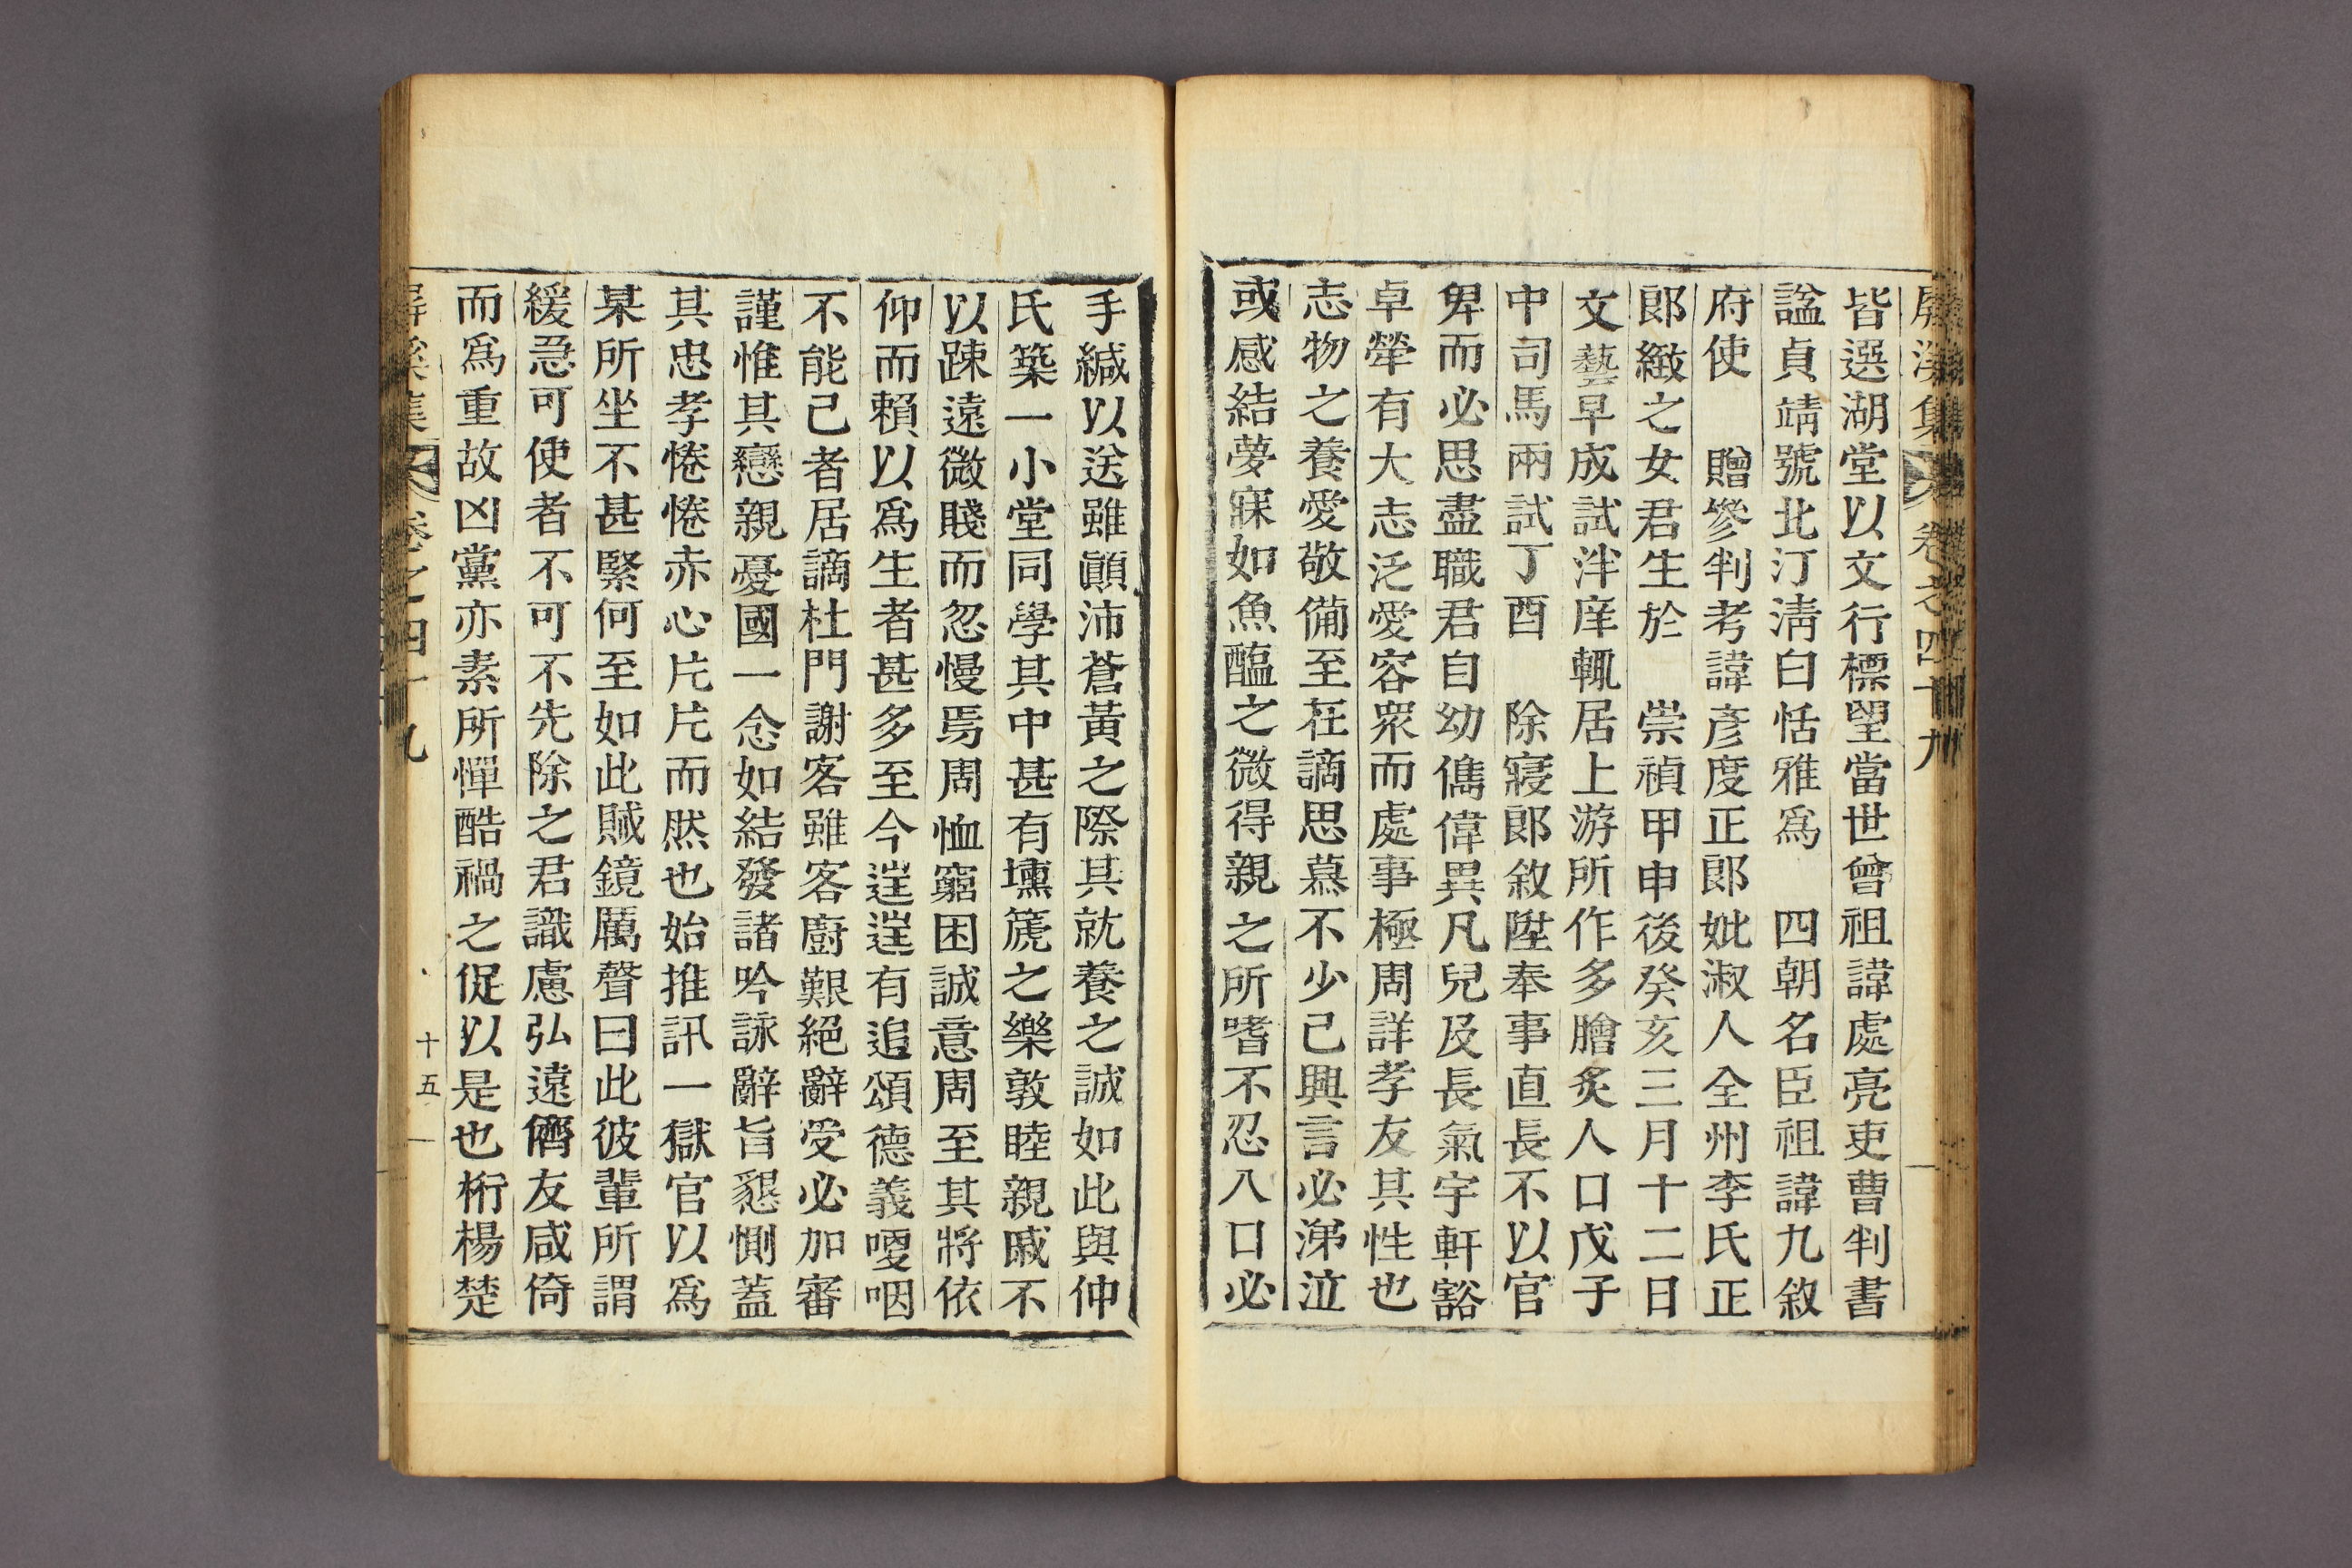 屛溪集 卷之四十九
皆選湖堂以文行標望當世曾祖諱處亮吏曹判書
諡貞靖號北汀淸白恬雅爲 四朝名臣祖諱九敘
府使 贈參判考諱彥度正郞妣淑人全州李氏正
郞緻之女君生於 崇禎甲申後癸亥三月十二日
文藝早成試泮庠輒居上游所作多膾炙人口戊子
中司馬兩試丁酉 除寢郞敘陞奉事直長不以官
卑而必思盡職君自幼儁偉異凡兒及長氣宇軒豁
卓犖有大志泛愛容衆而處事極周詳孝友其性也
志物之養愛敬備至在謫思慕不少已興言必涕泣
或感結夢寐如魚醢之微得親之所嗜不忍入口必
手緘以送雖顚沛蒼黃之際其就養之誠如此與仲
氏築一小堂同學其中甚有壎篪之樂敦睦親戚不
以踈遠微賤而忽慢焉周恤窮困誠意周至其將依
仰而賴以爲生者甚多至今迬迬有追頌德義嗄咽
不能已者居謫杜門謝客雖客廚艱絕辭受必加審
謹惟其戀親憂國一念如結發諸吟詠辭旨懇惻蓋
其忠孝惓惓赤心片片而然也始推訊一獄官以爲
某所坐不甚緊何至如此賊鏡厲聲曰此彼輩所謂
緩急可使者不可不先除之君識慮弘遠儕友咸倚
而爲重故凶黨亦素所憚酷禍之促以是也桁楊楚
屛溪集 卷之四十九 十五